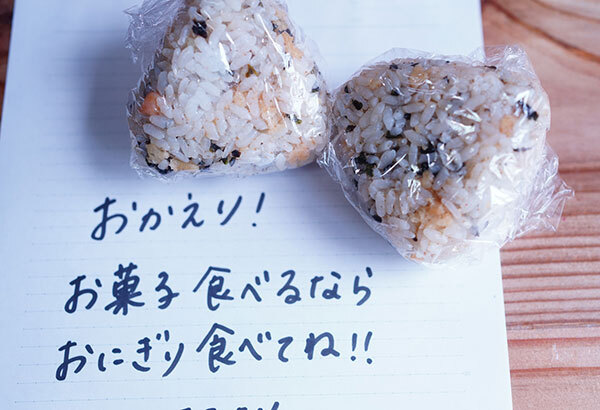 おかえり!
お菓子食べるなら
おにぎり食べてね!!